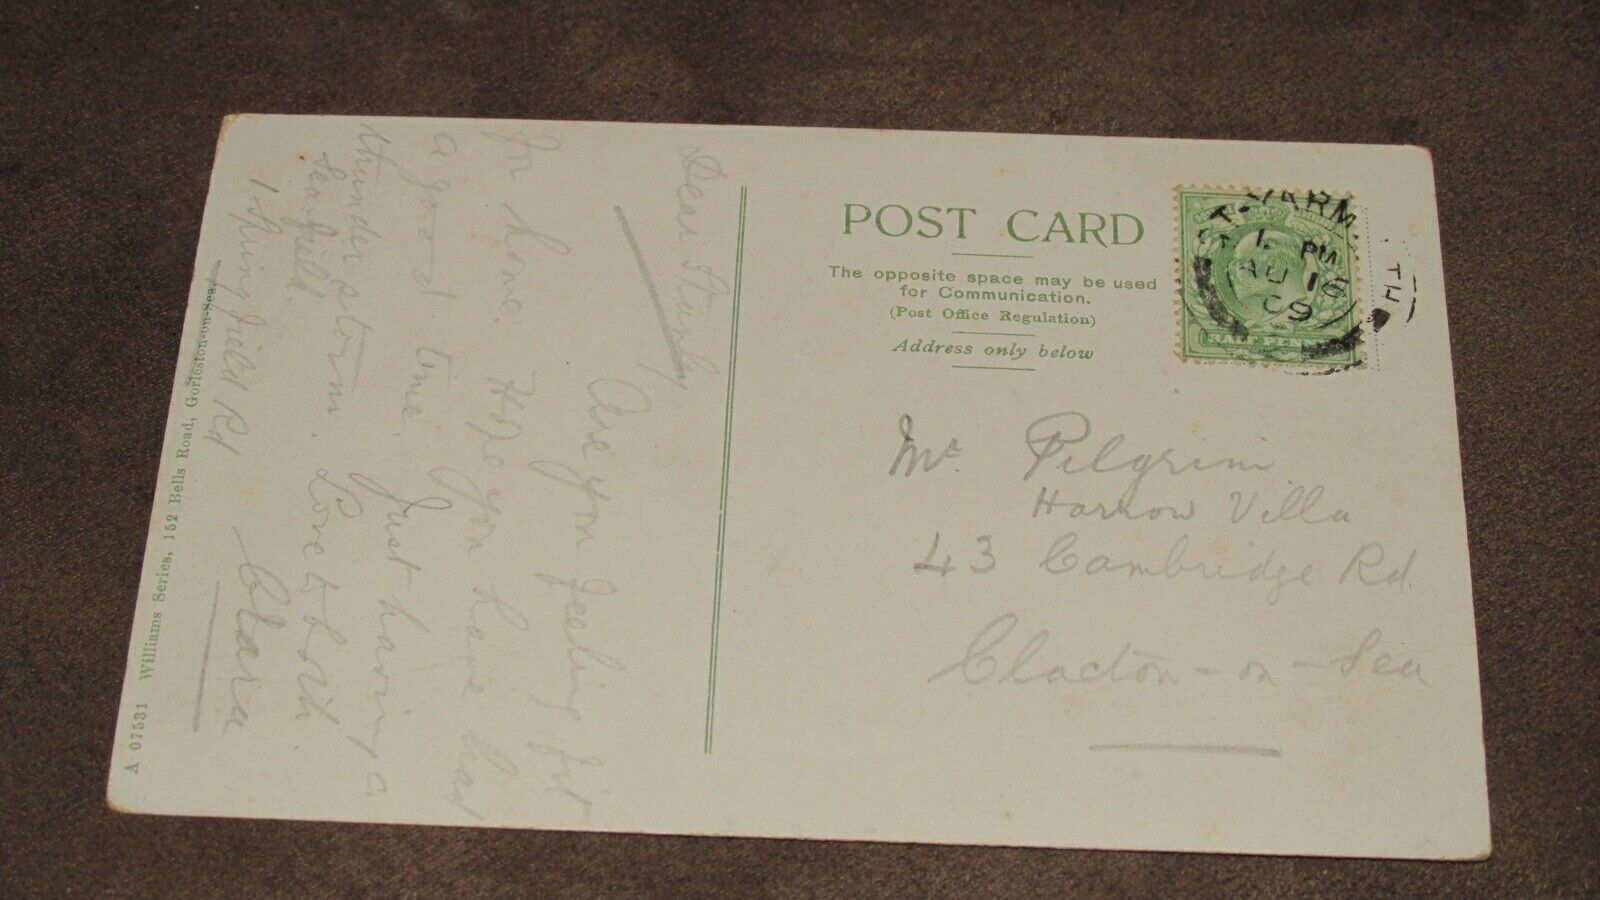 Dear Stanley
Are you feeling fit
for home. Hope you have had
a good time. Just having a
thunder storm. Love to both.
Seafield
1 Springfield Rd
Clara
A 07531 Williams Series, 152 Bells Road, Gorleston-on-Sea.
POST CARD
The opposite space may be used
for Communication.
(Post Office Regulation)
Address only below
GT. YARMOUTH
1. PM
AU 16
09
HALFPENNY
Mr Pilgrim
Harrow Villa
43 Cambridge Rd
Clacton-on-Sea